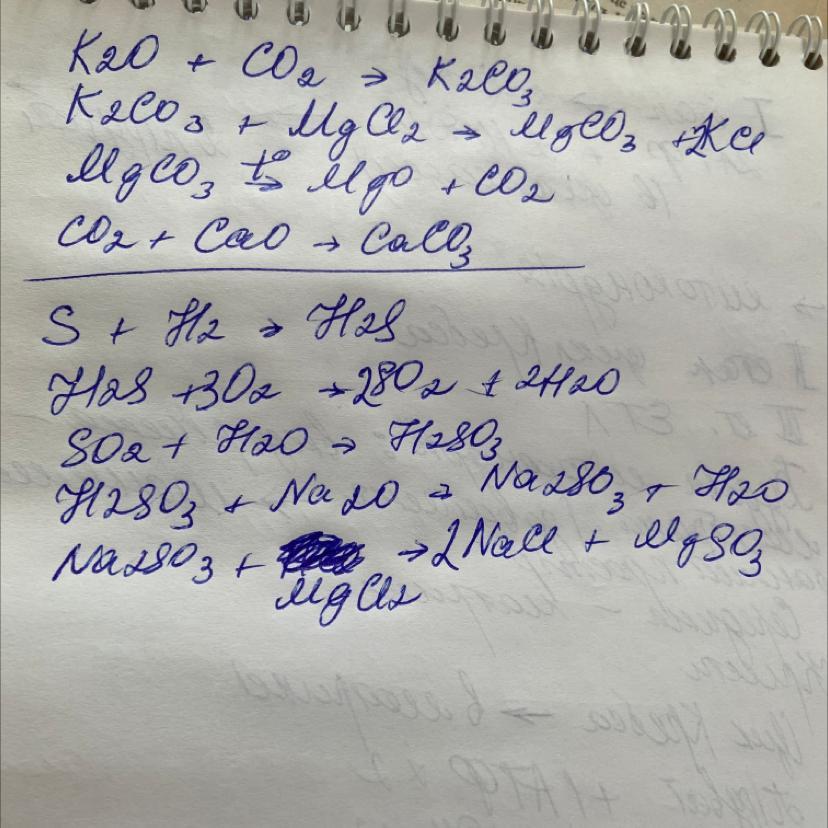 K2O + CO2 → K2CO3
K2CO3 + MgCl2 → MgCO3 + 2KCl
MgCO3 t°→ MgO + CO2
CO2 + CaO → CaCO3
S + H2 → H2S
H2S + 3O2 → 2SO2 + 2H2O
SO2 + H2O → H2SO3
H2SO3 + Na2O → Na2SO3 + H2O
Na2SO3 + → 2NaCl + MgSO3
MgCl2